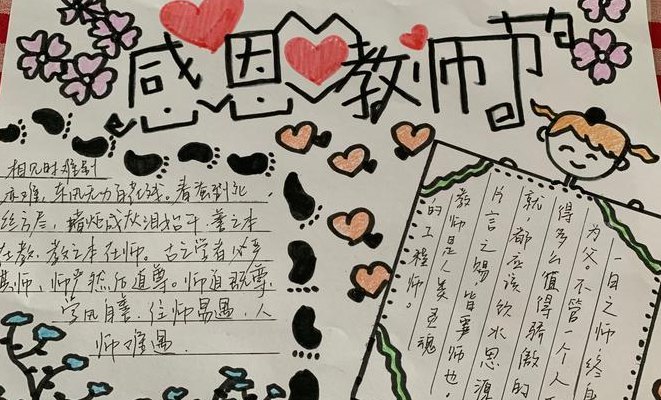 感恩教师节
相见时难别
亦难，东风无力百花残。春蚕到死
丝方尽，蜡炬成灰泪始干，善之本
在教，教之本在师。古之学者必有
其师，师严然后道尊。师道既尊，
学风自善，经师易遇，人
师难遇
一日之师，终身
为父。不管一个人
得多么值得骄傲的
就，都应该饮水思源
片言之赐，皆吾师也
教师是人类灵魂
的工程师。